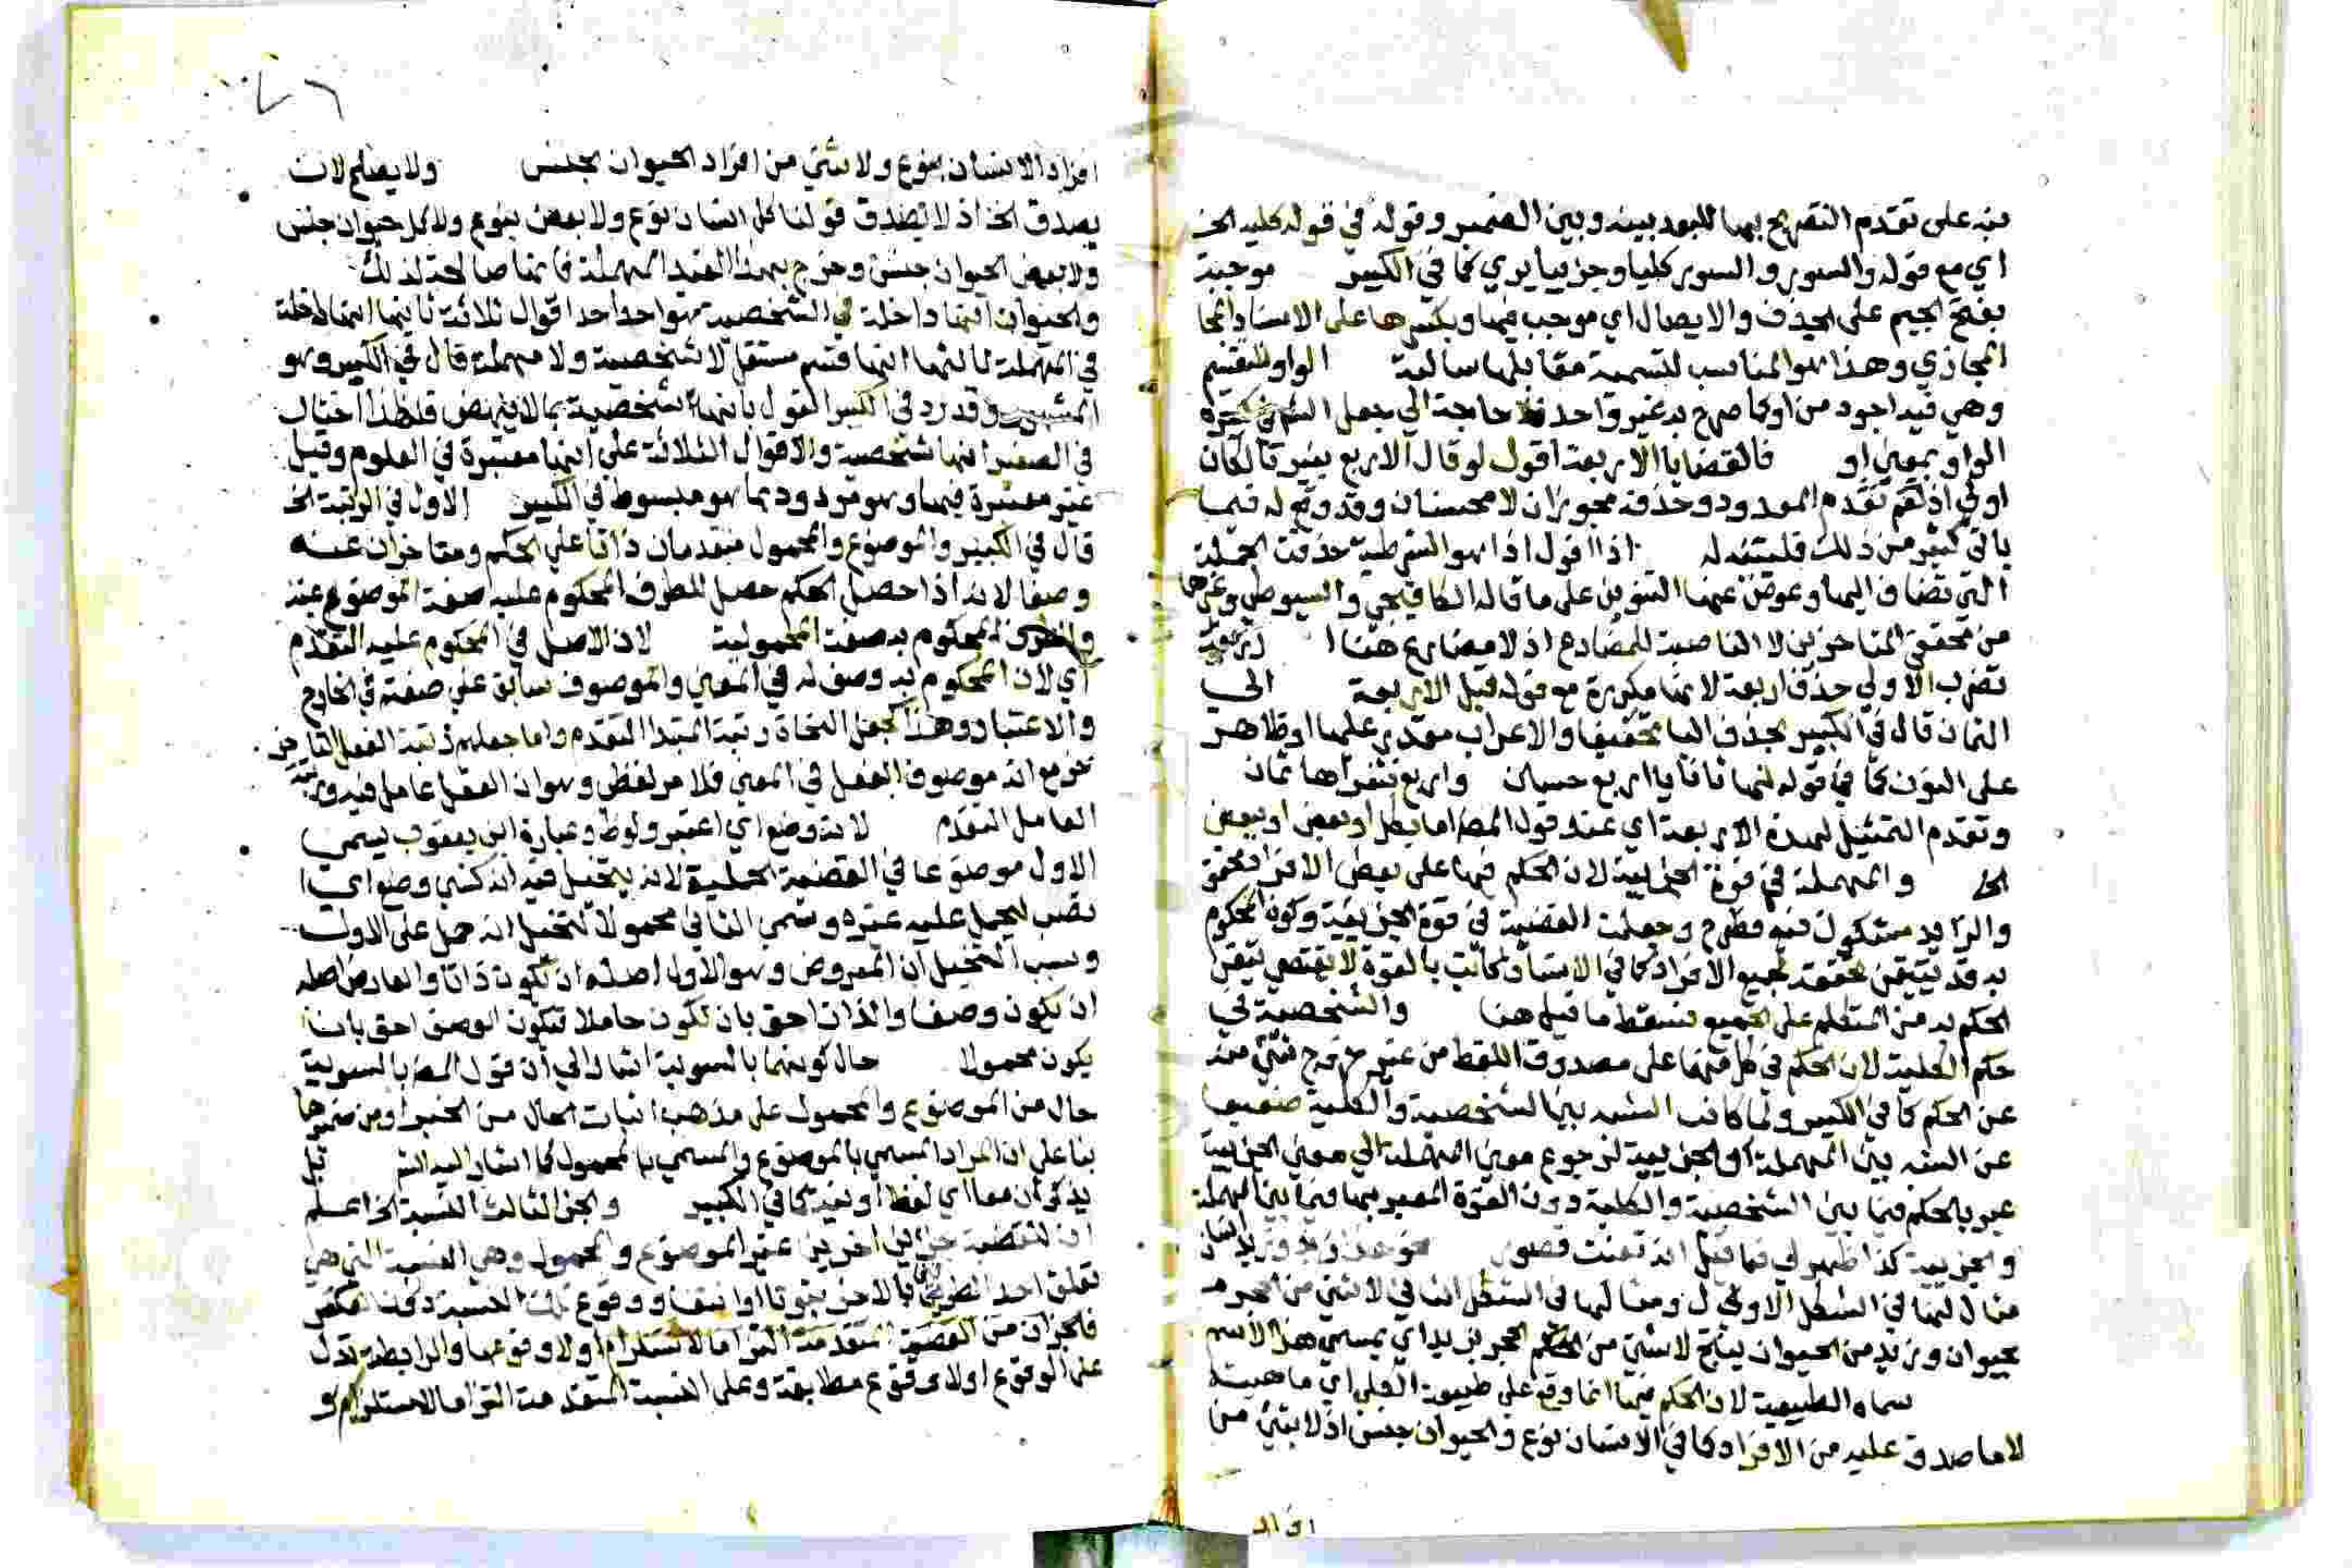 منه على تقدم التصريح بها للبعد بينه وبين الضمير وقوله في قوله كليه الخ
اي مع قوله والسور والسور كليا وجزئيا يري كما في الكبير موجبة
بفتح الجيم على الحذف والايصال اي موجب فيها وبكسرها على الاسناد
المجازي وهذا هو المناسب لتسمية مقابلها سالبة الواو للتقسيم
وهي فيه اجود من او كما صرح به غير واحد فلا حاجة الي جعل
الواو بمعني او فالقضايا الاربعة اقول لو قال الاربع بغير تا لكان
اولي اذ تقدم المعدود وحذفه مجوزان لا محسنان وقد وقع له فيما
ياتي كثير من ذلك فليتنبه له اذا اقول اذا هو الشرطية حذفت الجملة
التي تضاف اليها وعوض عنها التنوين على ما قاله الكافيجي والسيوطي وغيرهما
من محققي المتاخرين لا الناصبة للمضارع اذ لا مضارع هنا
تضرب الاولي حذف اربعة لانها مكررة مع قوله قبل الاربعة الي
الثمان قال في الكبير بحذف اليا تخفيفا والاعراب مقدر عليها او ظاهر
على النون كما في قوله لها ثنايا اربع حسان واربع فثغرها ثمان
وتقدم التمثيل لهذه الاربعة اي عند قول المص اما بكل او ببعض او ببعض
الخ والمهملة في قوة الجزئية لان الحكم فيها على بعض الافراد محقق
والزايد مشكوك فيه فطرح وجعلت القضية في قوة الجزئية وكون المحكوم
به قد يتيقن تحققه لجميع الافراد كما في الانسان كاتب بالقوة لا يقتضي تيقن
الحكم به من المتكلم على الجميع فسقط ما قيل هنا والشخصية في
حكم الكلية لان الحكم في كل منهما على مصدوق اللفظ من غير خروج شيء منه
عن الحكم كما في الكبير ولما كانت الشبه بين الشخصية والكلية ضعيفا
عن الشبه بين المهملة والجزئية لرجوع معني المهملة الي معني الجزئية
عبر بالحكم فيما بين الشخصية والكلية دون القوة المعبر بها فيما بين المهملة
والجزئية كذا ظهر لي فما قيل انه تفنت قصور نحو هذا زيد وزيد انسان
مثال لها في الشكل الاول ومثالها في الشكل الثاني لا شيء من الحجر
بحيوان وزيد من الحيوان ينتج لا شيء من الحجر بزيد اي بمسمي هذا الاسم
سماه الطبيعية لان الحكم فيها انما وقع على طبيعة الكلي اي ماهيته
لا ما صدق عليه من الافراد كما في الانسان نوع والحيوان جنس اذ لا شيء من
افراد
افراد الانسان بنوع ولا شيء من افراد الحيوان بجنس ولا يصلح لان
يصدق الخ اذ لا يصدق قولنا كل انسان نوع ولا بعض بنوع ولا كل حيوان جنس
ولا بعض الحيوان جنس وخرج بهذا القيد المهملة فانها صالحة لذلك
والحيوان انها داخلة في الشخصية هو احد اقوال ثلاثة ثانيها انها داخلة
في المهملة ثالثها انها قسم مستقل لا شخصية ولا مهملة قال في الكبير وهو
وقد رد في الكبير القول بانها شخصية بما لا ينهض فلهذا اختار
في الصغير انها شخصية والاقوال الثلاثة على انها معتبرة في العلوم وقيل
غير معتبرة فيها وهو مردود بما هو مبسوط في الكبير الاول في الرتبة الخ
قال في الكبير والموضوع والمحمول متقدمان ذاتا على الحكم ومتاخران عنه
وصفا لانه اذا حصل الحكم حصل للطرف المحكوم عليه صفة الموضوعية
والطرف المحكوم به صفة المحمولية لان الاصل في المحكوم عليه التقدم
اي لان المحكوم به وصف له في المعني والموصوف سابق على صفته في الخارج
والاعتبار وهذا كجعل النحاة رتبة المبتدا التقدم واما جعلهم رتبة الفاعل التاخير
مع انه موصوف الفعل في المعني فلامر لفظي وهو ان الفعل عامل فيه ورتبة
العامل التقدم لانه وضع اي اعتبر ولوحظ وعبارة ابن يعقوب يسمى
الاول موضوعا في القضية الحملية لانه يتخيل فيه انه كشيء وضع اي
نصب ليحمل عليه غيره وسمي الثاني محمولا لتخيل انه حمل على الاول
وسبب التخيل ان المعروض وهو الاول اصله ان تكون ذاتا والعارض اصله
ان يكون وصفا والذات احق بان تكون حاملا فيكون الوصف احق بان
يكون محمولا حال كونهما بالسوية اشار الي ان قول المص بالسوية
حال من الموضوع والمحمول على مذهب اثبات الحال من الخبر او من ضميرها
بنا على ان المراد المسمي بالموضوع والمسمي بالمحمول كما اشار اليه الش
يذكران معا اي لفظا او نية كما في الكبير والجزء الثالث النسبة الخ اعلم
ان للقضية جزئين اخرين غير الموضوع والمحمول وهي النسبة التي هي
تعلق احد الطرفين بالاخر ثبوتا او انتفا ووقوع تلك النسبة
فالجزان من القضية المتقدمة التزاما لاستلزام او لا وقوعها والرابطة تدل
على الوقوع او لا وقوع مطابقة وعلى النسبة المتقدمة التزاما لاستلزام